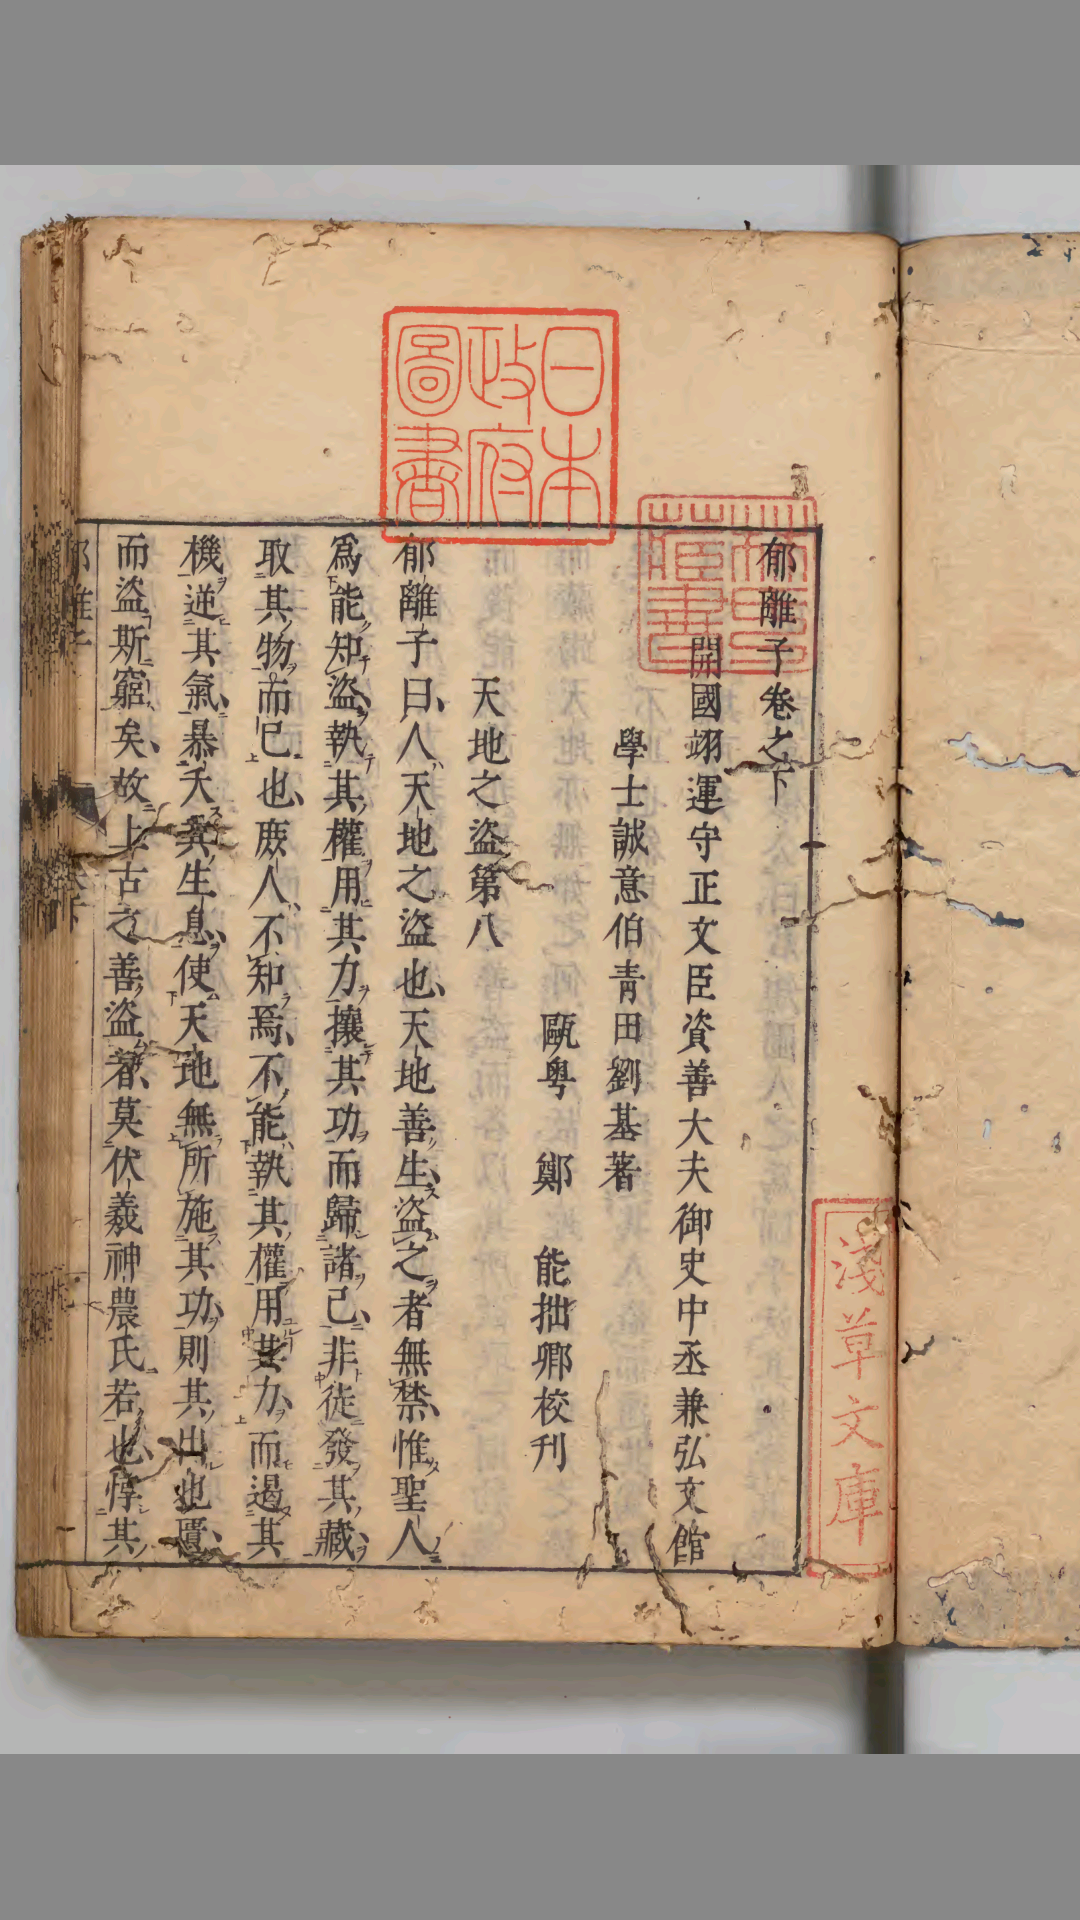 郁離子卷之下
開國翊運守正文臣資善大夫御史中丞兼弘文館
學士誠意伯青田劉基著
甌粤鄭能拙卿校刊
天地之盜第八
郁離子曰人天地之盜也天地善生盜之者無禁惟聖人
爲能知盜執其權用其力攘其功而歸諸己非徒發其藏
取其物而已也庶人不知焉不能執其權用其力而遏其
機逆其氣暴夭其生息使天地無所施其功則其出也匱
而盜斯窮矣故上古之善盜者莫伏羲神農氏若也惇其
日本
政府
圖書
林氏
藏書
淺草文庫